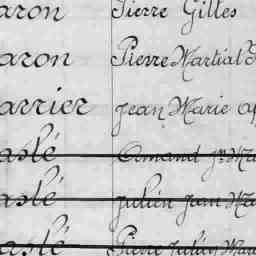 aron Pierre Gilles
aron Pierre Martial
arrier Jean Marie
aslé Armand Jn Ma
aslé Julien Jean Ma
aslé Pierre Julien Mar